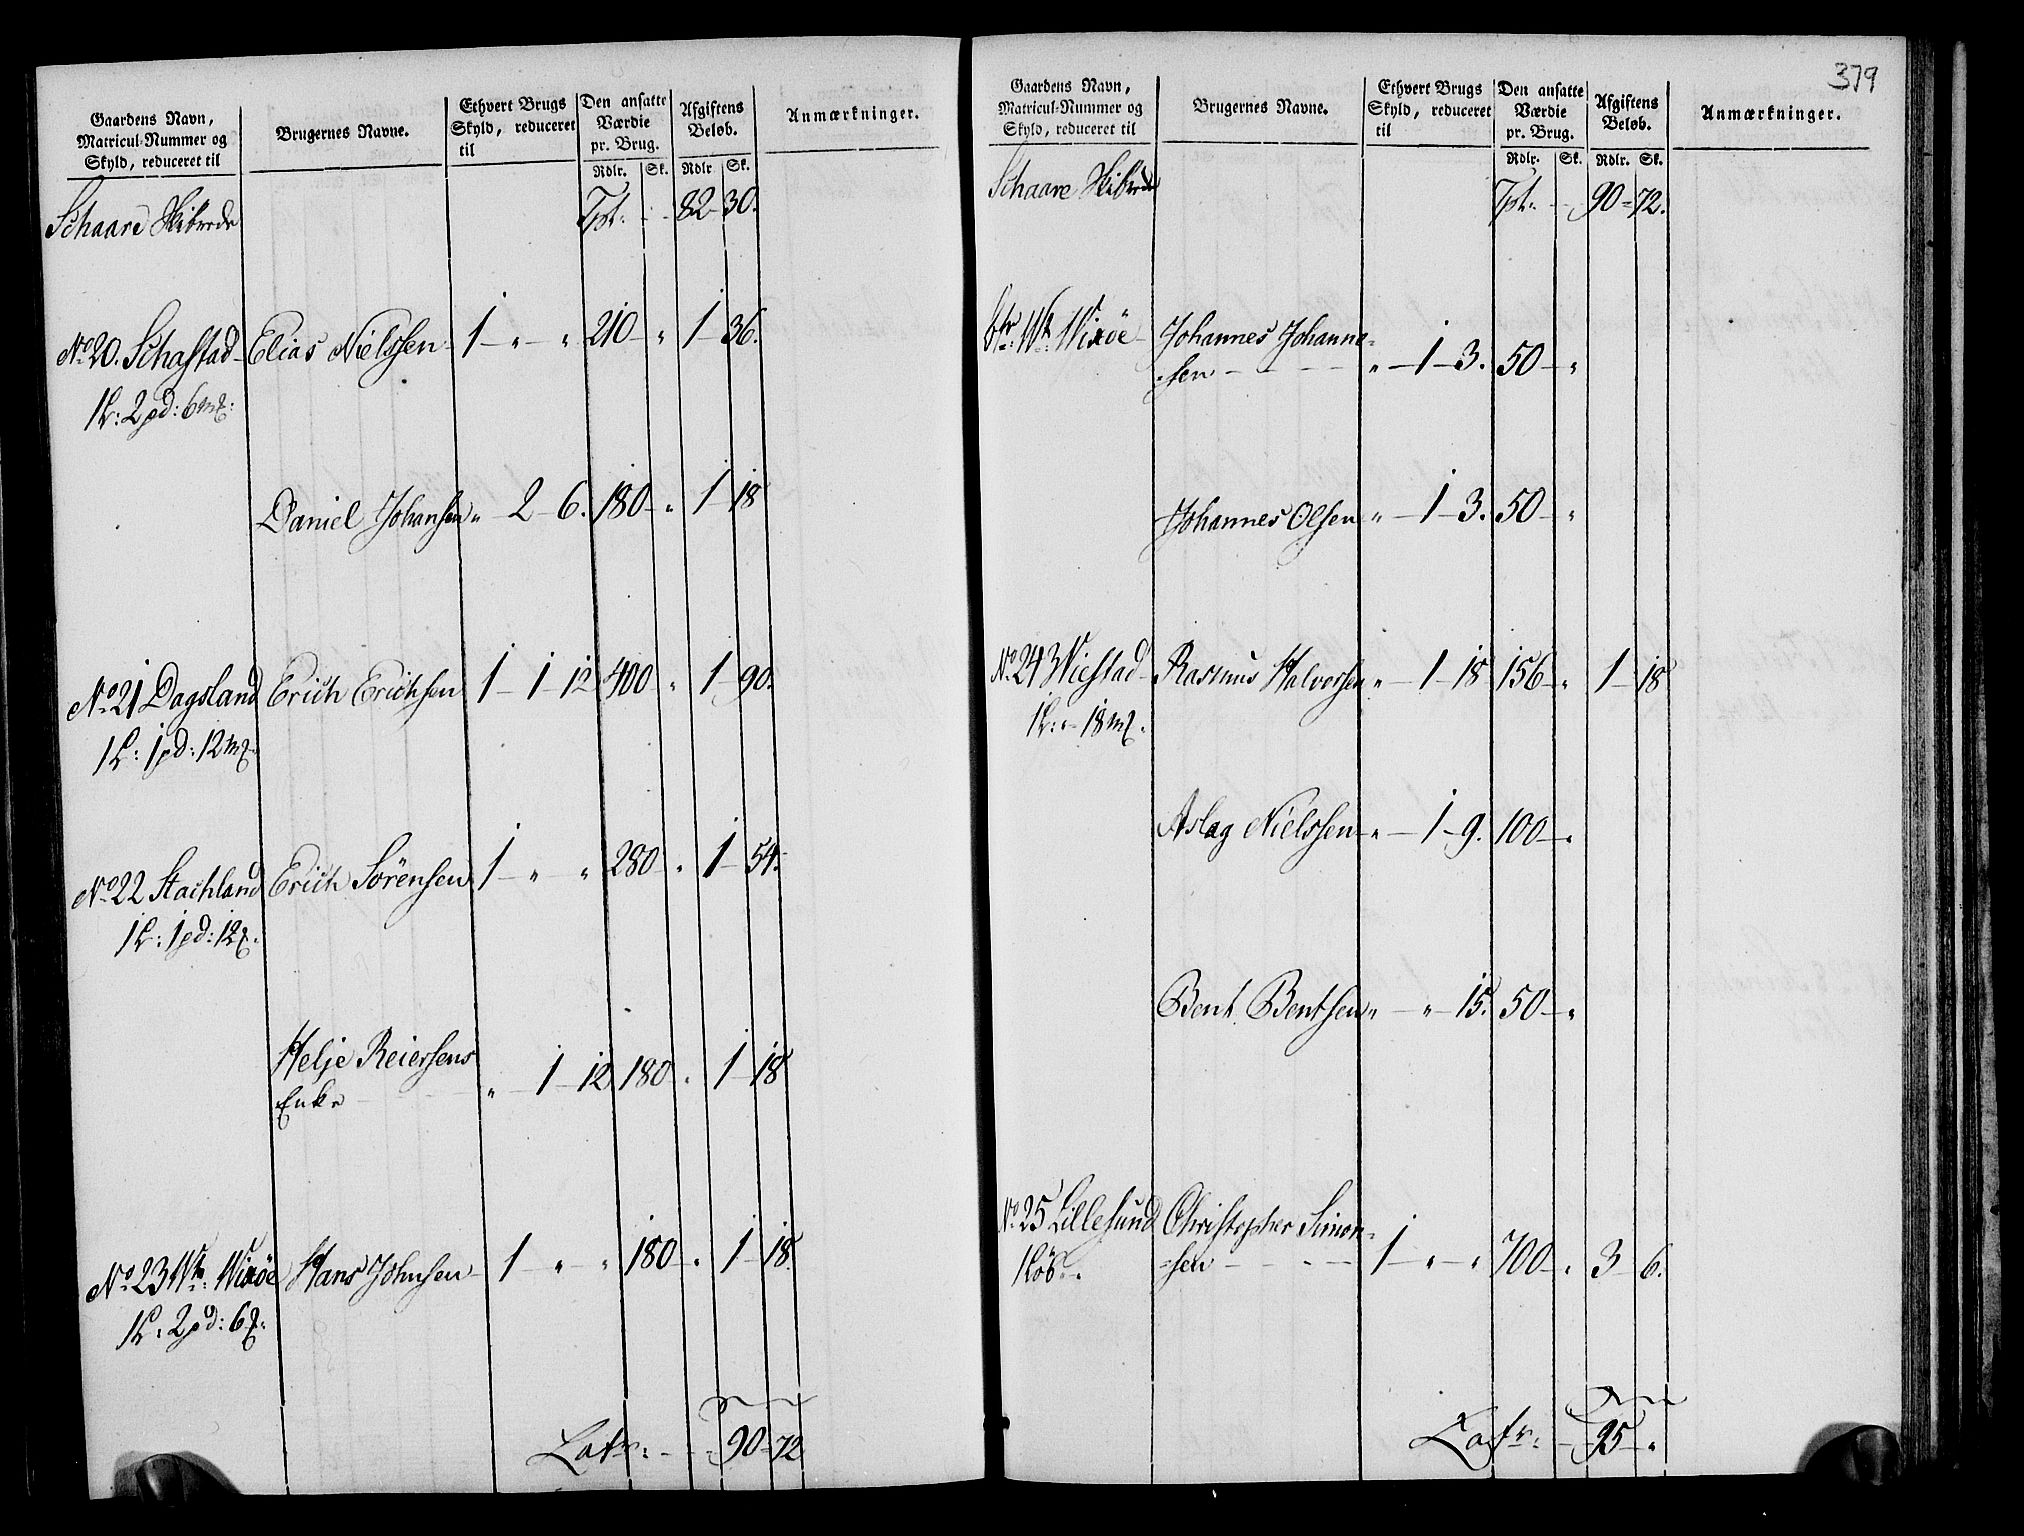 Gaardens Navn,
Matricul-Nummer og
Skyld, reduceret til
Brugernes Navne.
Ethvert Brugs
Skyld, reduceret
til
Den ansatte
Værdie
pr. Brug.
Rdlr. Sk.
Afgiftens
Beløb.
Rdlr Sk.
Anmærkninger.
Schaare Skibrede Tpt: 82 30.
No 20. Schastad Elias Nielssen 1 - " - " 210 " 1 36.
1 L: 2 pd: 6 mk:
Daniel Johansen " 2 6. 180 " 1 18
No 21 Dagsland Erich Erichsen 1 - 1 - 12 400 " 1 90.
1 L: 1 pd: 12 mk.
No 22 Stachland Erich Sørensen 1 - " " 280 " 1 54.
1 L: 1 pd: 12
Helje Reiersens
Enke " 1 - 12 180 " 1 18
No 23 Wixøe Hans Johnsen 1 - " " 180 " 1 18.
1 L: 2 pd: 6
Latr: 90 72
379
Gaardens Navn,
Matricul-Nummer og
Skyld, reduceret til
Brugernes Navne.
Ethvert Brugs
Skyld, reduceret
til
Den ansatte
Værdie
pr. Brug.
Rdlr. Sk.
Afgiftens
Beløb.
Rdlr. Sk.
Anmærkninger.
Schaare Skibrede Tpt: 90 72.
Wixøe Johannes Johanne-
sen " 1 - 3. 50 "
Johannes Olsen " 1 - 3. 50 "
No 24 Wiestad Rasmus Halvorsen " 1 - 18 156 " 1 18
1 L: " 18 mk.
Aslag Nielssen " 1 - 9. 100 "
Bent Bentsen " " 15. 50 "
No 25 Lillesund Christopher Simon-
sen 1 - " - " 700 " 3 6.
Latr: 95 "